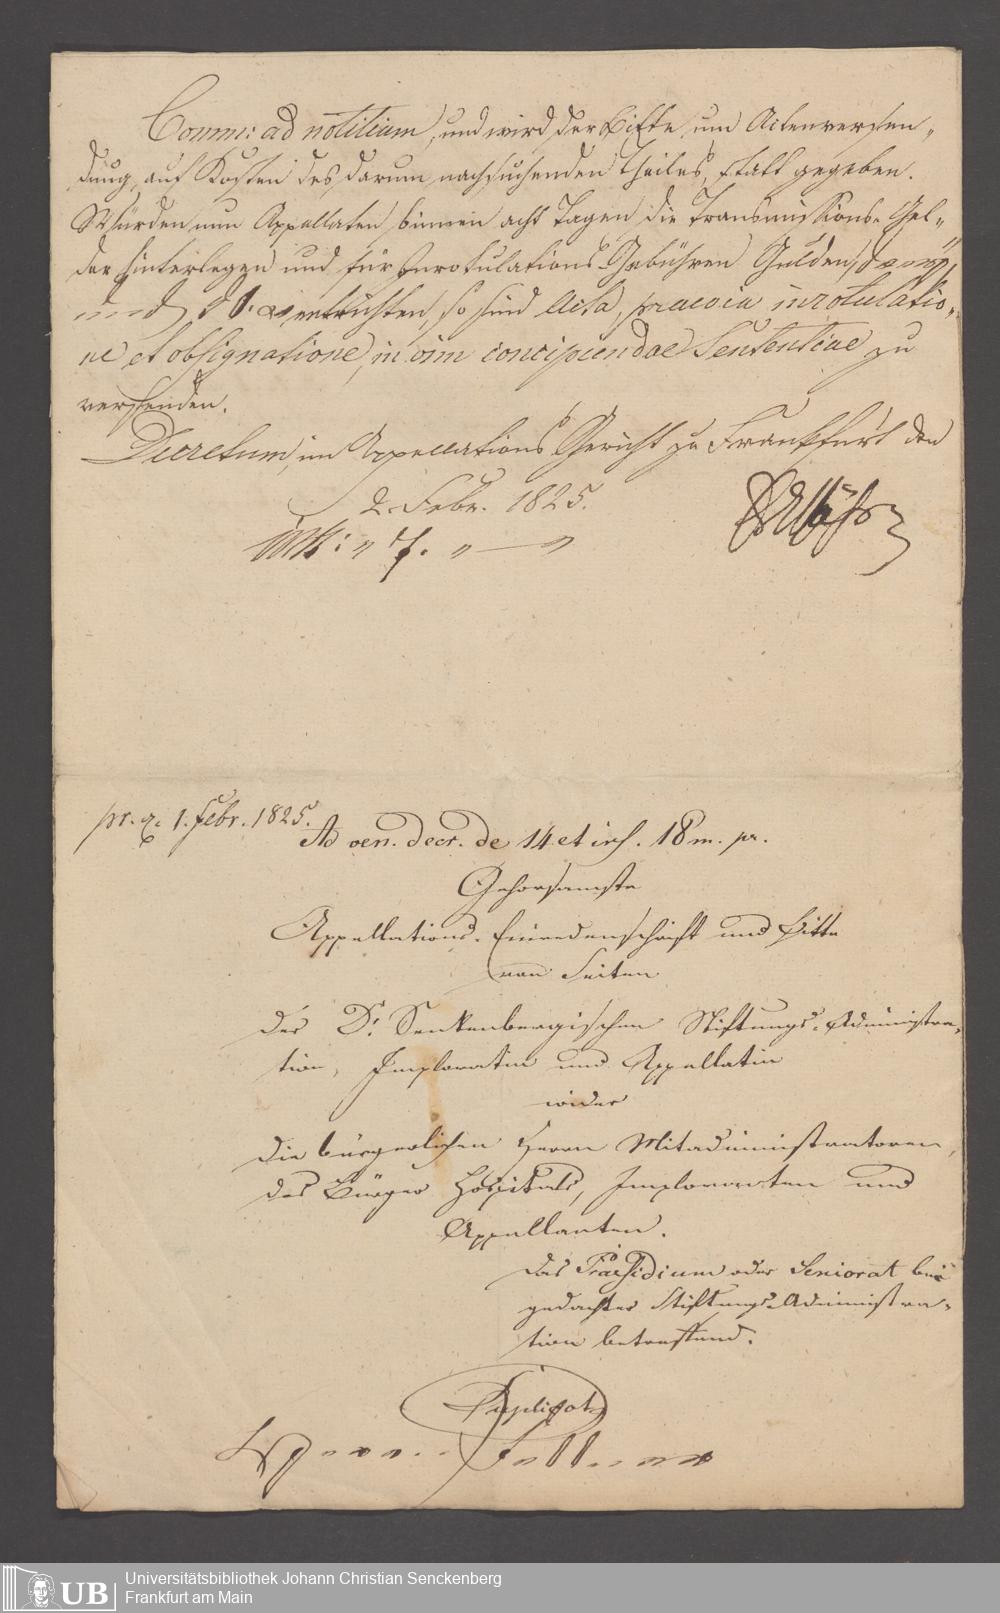 Comm: ad notitiam, und wird der Bitte um Actenversen-
dung, auf Kosten des darum nachsuchenden Theiles, statt gegeben.
Würden nun Appellaten binnen acht Tagen die Transmissions-Gel-
der hinterlegen und für Inrotulations-Gebühren Gulden
entrichten, so sind Acta, praevia inrotulatio-
ne et obsignatione, in vim concipiendae Sententiae zu
versenden.
Decretum, im Appellations Gericht zu Frankfurt den
2. Febr. 1825.
7.
pr. 1. Febr. 1825.
Ad ven. decr. de 14 et ins. 18 m. pr.
Gehorsamste
Appellations-Einredenschrift und Bitte
von Seiten
der Dr. Senkenbergischen Stiftungs-Administra-
tion, Imploratin und Appellatin
wider
die bürgerlichen Herrn Mitadministratoren
des Bürger Hospitals, Imploranten und
Appellanten.
das Praesidium oder Seniorat bei
gedachter Stiftungs-Administra-
tion betreffend.
Duplicat
UB
Universitätsbibliothek Johann Christian Senckenberg
Frankfurt am Main